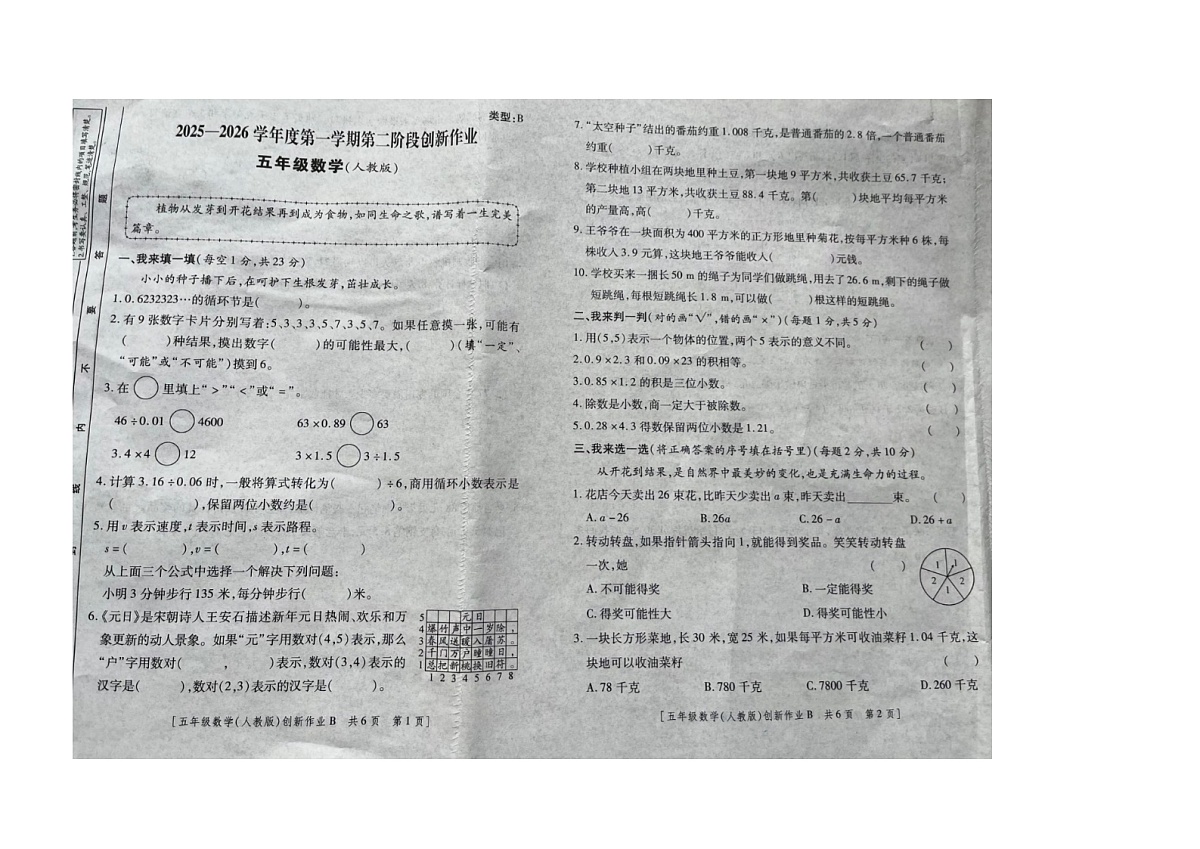 类型:B
2025—2026 学年度第一学期第二阶段创新作业
五年级数学(人教版)
植物从发芽到开花结果再到成为食物,如同生命之歌,谱写着一生完美
篇章。
一、我来填一填(每空 1 分,共 23 分)
小小的种子播下后,在呵护下生根发芽,茁壮成长。
1. 0.6232323…的循环节是( )。
2. 有 9 张数字卡片分别写着:5、3、3、3、5、7、3、5、7。如果任意摸一张,可能有
( )种结果,摸出数字( )的可能性最大,( )(填“一定”、
“可能”或“不可能”)摸到 6。
3. 在○里填上“>”“<”或“=”。
46÷0.01○4600 63×0.89○63
3.4×4○12 3×1.5○3÷1.5
4. 计算 3.16÷0.06 时,一般将算式转化为( )÷6,商用循环小数表示是
( ),保留两位小数约是( )。
5. 用 v 表示速度,t 表示时间,s 表示路程。
s=( ),v=( ),t=( )
从上面三个公式中选择一个解决下列问题:
小明 3 分钟步行 135 米,每分钟步行( )米。
6.《元日》是宋朝诗人王安石描述新年元日热闹、欢乐和万
象更新的动人景象。如果“元”字用数对(4,5)表示,那么
“户”字用数对( , )表示,数对(3,4)表示的
汉字是( ),数对(2,3)表示的汉字是( )。
5 元日
4 爆竹声中一岁除,
3 春风送暖入屠苏。
2 千门万户曈曈日,
1 总把新桃换旧符。
1 2 3 4 5 6 7 8
[五年级数学(人教版)创新作业 B 共 6 页 第 1 页]
7. “太空种子”结出的番茄约重 1.008 千克,是普通番茄的 2.8 倍,一个普通番茄
约重( )千克。
8. 学校种植小组在两块地里种土豆,第一块地 9 平方米,共收获土豆 65.7 千克;
第二块地 13 平方米,共收获土豆 88.4 千克。第( )块地平均每平方米
的产量高,高( )千克。
9. 王爷爷在一块面积为 400 平方米的正方形地里种菊花,按每平方米种 6 株,每
株收入 3.9 元算,这块地王爷爷能收入( )元钱。
10. 学校买来一捆长 50 m 的绳子为同学们做跳绳,用去了 26.6 m,剩下的绳子做
短跳绳,每根短跳绳长 1.8 m,可以做( )根这样的短跳绳。
二、我来判一判(对的画“√”,错的画“×”)(每题 1 分,共 5 分)
1. 用(5,5)表示一个物体的位置,两个 5 表示的意义不同。 ( )
2. 0.9×2.3 和 0.09×23 的积相等。 ( )
3. 0.85×1.2 的积是三位小数。 ( )
4. 除数是小数,商一定大于被除数。 ( )
5. 0.28×4.3 得数保留两位小数是 1.21。 ( )
三、我来选一选(将正确答案的序号填在括号里)(每题 2 分,共 10 分)
从开花到结果,是自然界中最美妙的变化,也是充满生命力的过程。
1. 花店今天卖出 26 束花,比昨天少卖出 a 束,昨天卖出______束。 ( )
A. a-26 B. 26a C. 26-a D. 26+a
2. 转动转盘,如果指针箭头指向 1,就能得到奖品。笑笑转动转盘
一次,她 ( )
A. 不可能得奖 B. 一定能得奖
C. 得奖可能性大 D. 得奖可能性小
1 1 2 2 1
3. 一块长方形菜地,长 30 米,宽 25 米,如果每平方米可收油菜籽 1.04 千克,这
块地可以收油菜籽 ( )
A. 78 千克 B. 780 千克 C. 7800 千克 D. 260 千克
[五年级数学(人教版)创新作业 B 共 6 页 第 2 页]
题
答
要
不
内
线